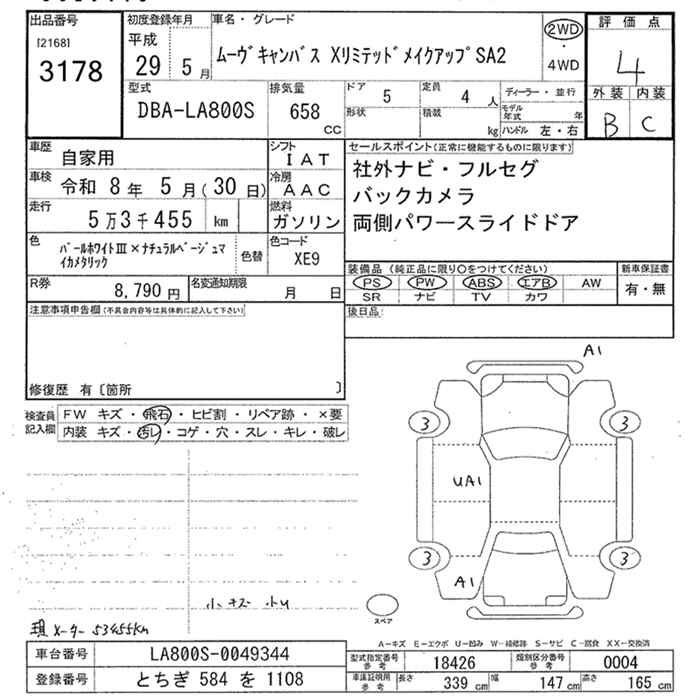 出品番号
[2168]
3178
初度登録年月
平成
29 5 月
車名・グレード
ムーヴキャンバス XリミテッドメイクアップSA2
2WD
・
4WD
評価点
4
外装 内装
B C
型式
DBA-LA800S
排気量
658
CC
ドア 5
定員 4 人
形状
積載 kg
ディーラー・並行
モデル年式 年
ハンドル 左・右
車歴 自家用
シフト IAT
車検 令和 8 年 5 月(30 日)
冷房 AAC
走行 5 万 3 千 455 km
燃料 ガソリン
色 パールホワイトⅢ×ナチュラルベージュマイカメタリック
色替
色コード XE9
R券 8,790 円
名変通知期限 月 日
セールスポイント(正常に機能するものに限ります)
社外ナビ・フルセグ
バックカメラ
両側パワースライドドア
装備品(純正品に限り○をつけてください)
PS PW ABS エアB AW
SR ナビ TV カワ
新車保証書
有・無
注意事項申告欄(不具合内容等は具体的に記入して下さい)
後日品:
修復歴 有〔箇所 〕
検査員記入欄
FW キズ・飛石・ヒビ割・リペア跡・×要
内装 キズ・汚レ・コゲ・穴・スレ・キレ・破レ
A1
3 3
UA1
3 3
A1
スペア
小キズ 小U
現メーター53455km
A-キズ E-エクボ U-凹み W-補修跡 S-サビ C-腐食 XX-交換済
車台番号 LA800S-0049344
登録番号 とちぎ 584 を 1108
型式指定番号参考 18426
類別区分番号参考 0004
車検証明用参考 長さ 339 cm 幅 147 cm 高さ 165 cm